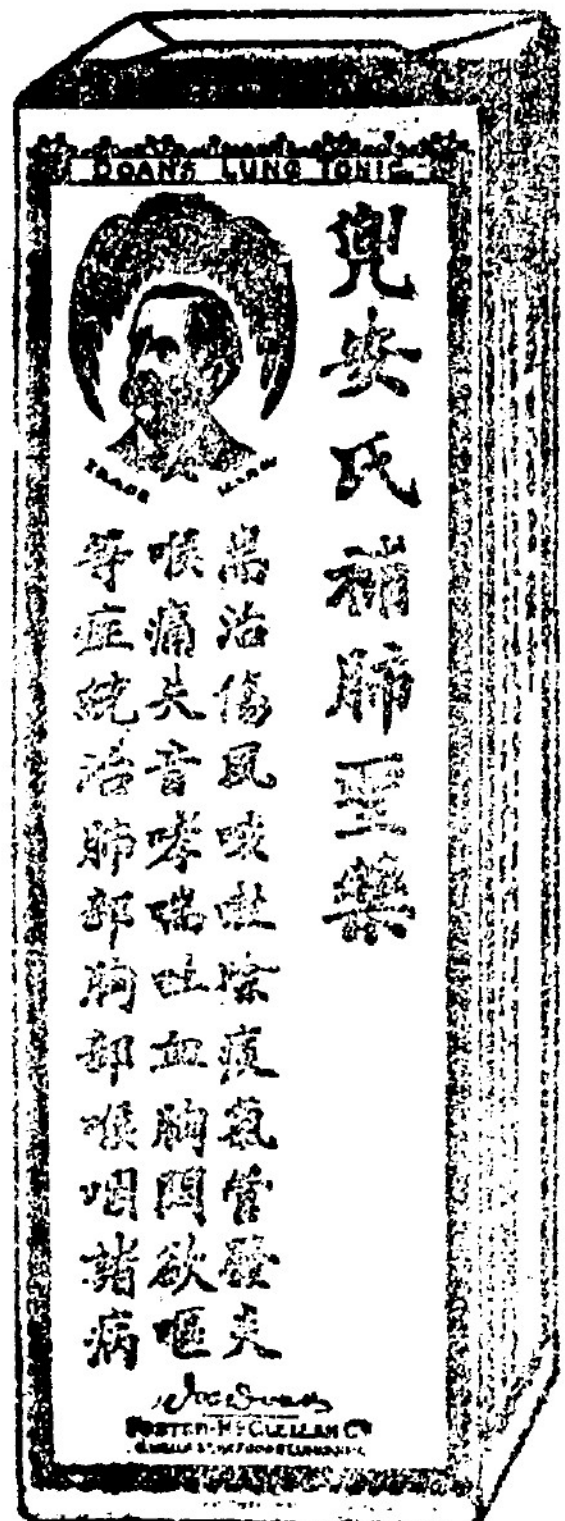 DOAN'S LUNG TONIC
兜安氏補肺聖藥
TRADE MARK
耑治傷風咳吐除痰氣管發炎
喉痛失音哮喘吐血胸悶欲嘔
等症統治肺部胸部喉咽諸病
FOSTER-McCLELLAN Co